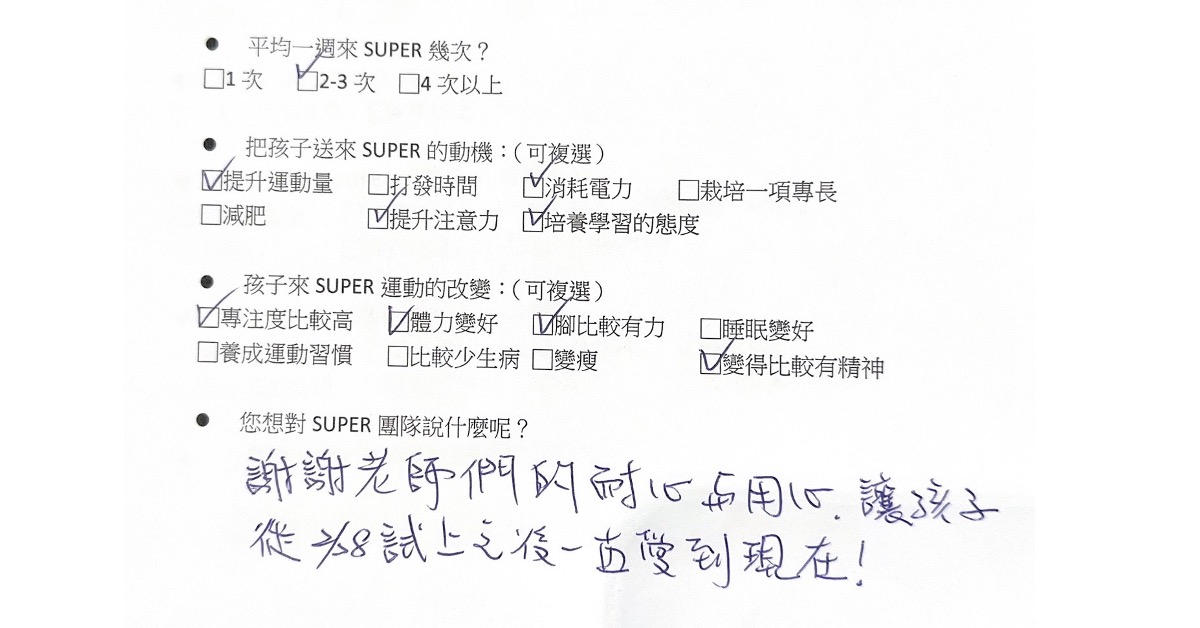 ● 平均一週來 SUPER 幾次？
□1 次 ☑2-3 次 □4 次以上
● 把孩子送來 SUPER 的動機：（可複選）
☑提升運動量 □打發時間 ☑消耗電力 □栽培一項專長
□減肥 ☑提升注意力 ☑培養學習的態度
● 孩子來 SUPER 運動的改變：（可複選）
☑專注度比較高 ☑體力變好 ☑腳比較有力 □睡眠變好
□養成運動習慣 □比較少生病 □變瘦 ☑變得比較有精神
● 您想對 SUPER 團隊說什麼呢？
謝謝老師們的耐心与用心. 讓孩子
從 2/38 試上之後一直愛到現在!